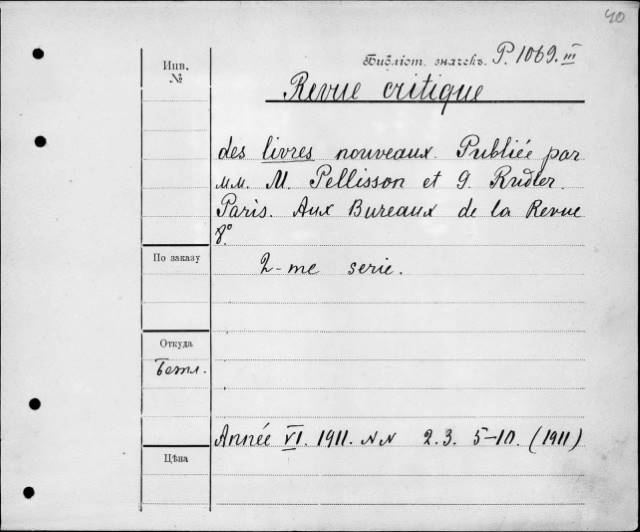 40
Инв. №
Библіот. значекъ. P. 1069. III
Revue critique
des livres nouveaux. Publiée par
MM. M. Pellisson et G. Rudler.
Paris. Aux Bureaux de la Revue
8°
По заказу
2-me serie.
Откуда
Бетл.
Année VI. 1911. NN 2. 3. 5-10. (1911)
Цѣна